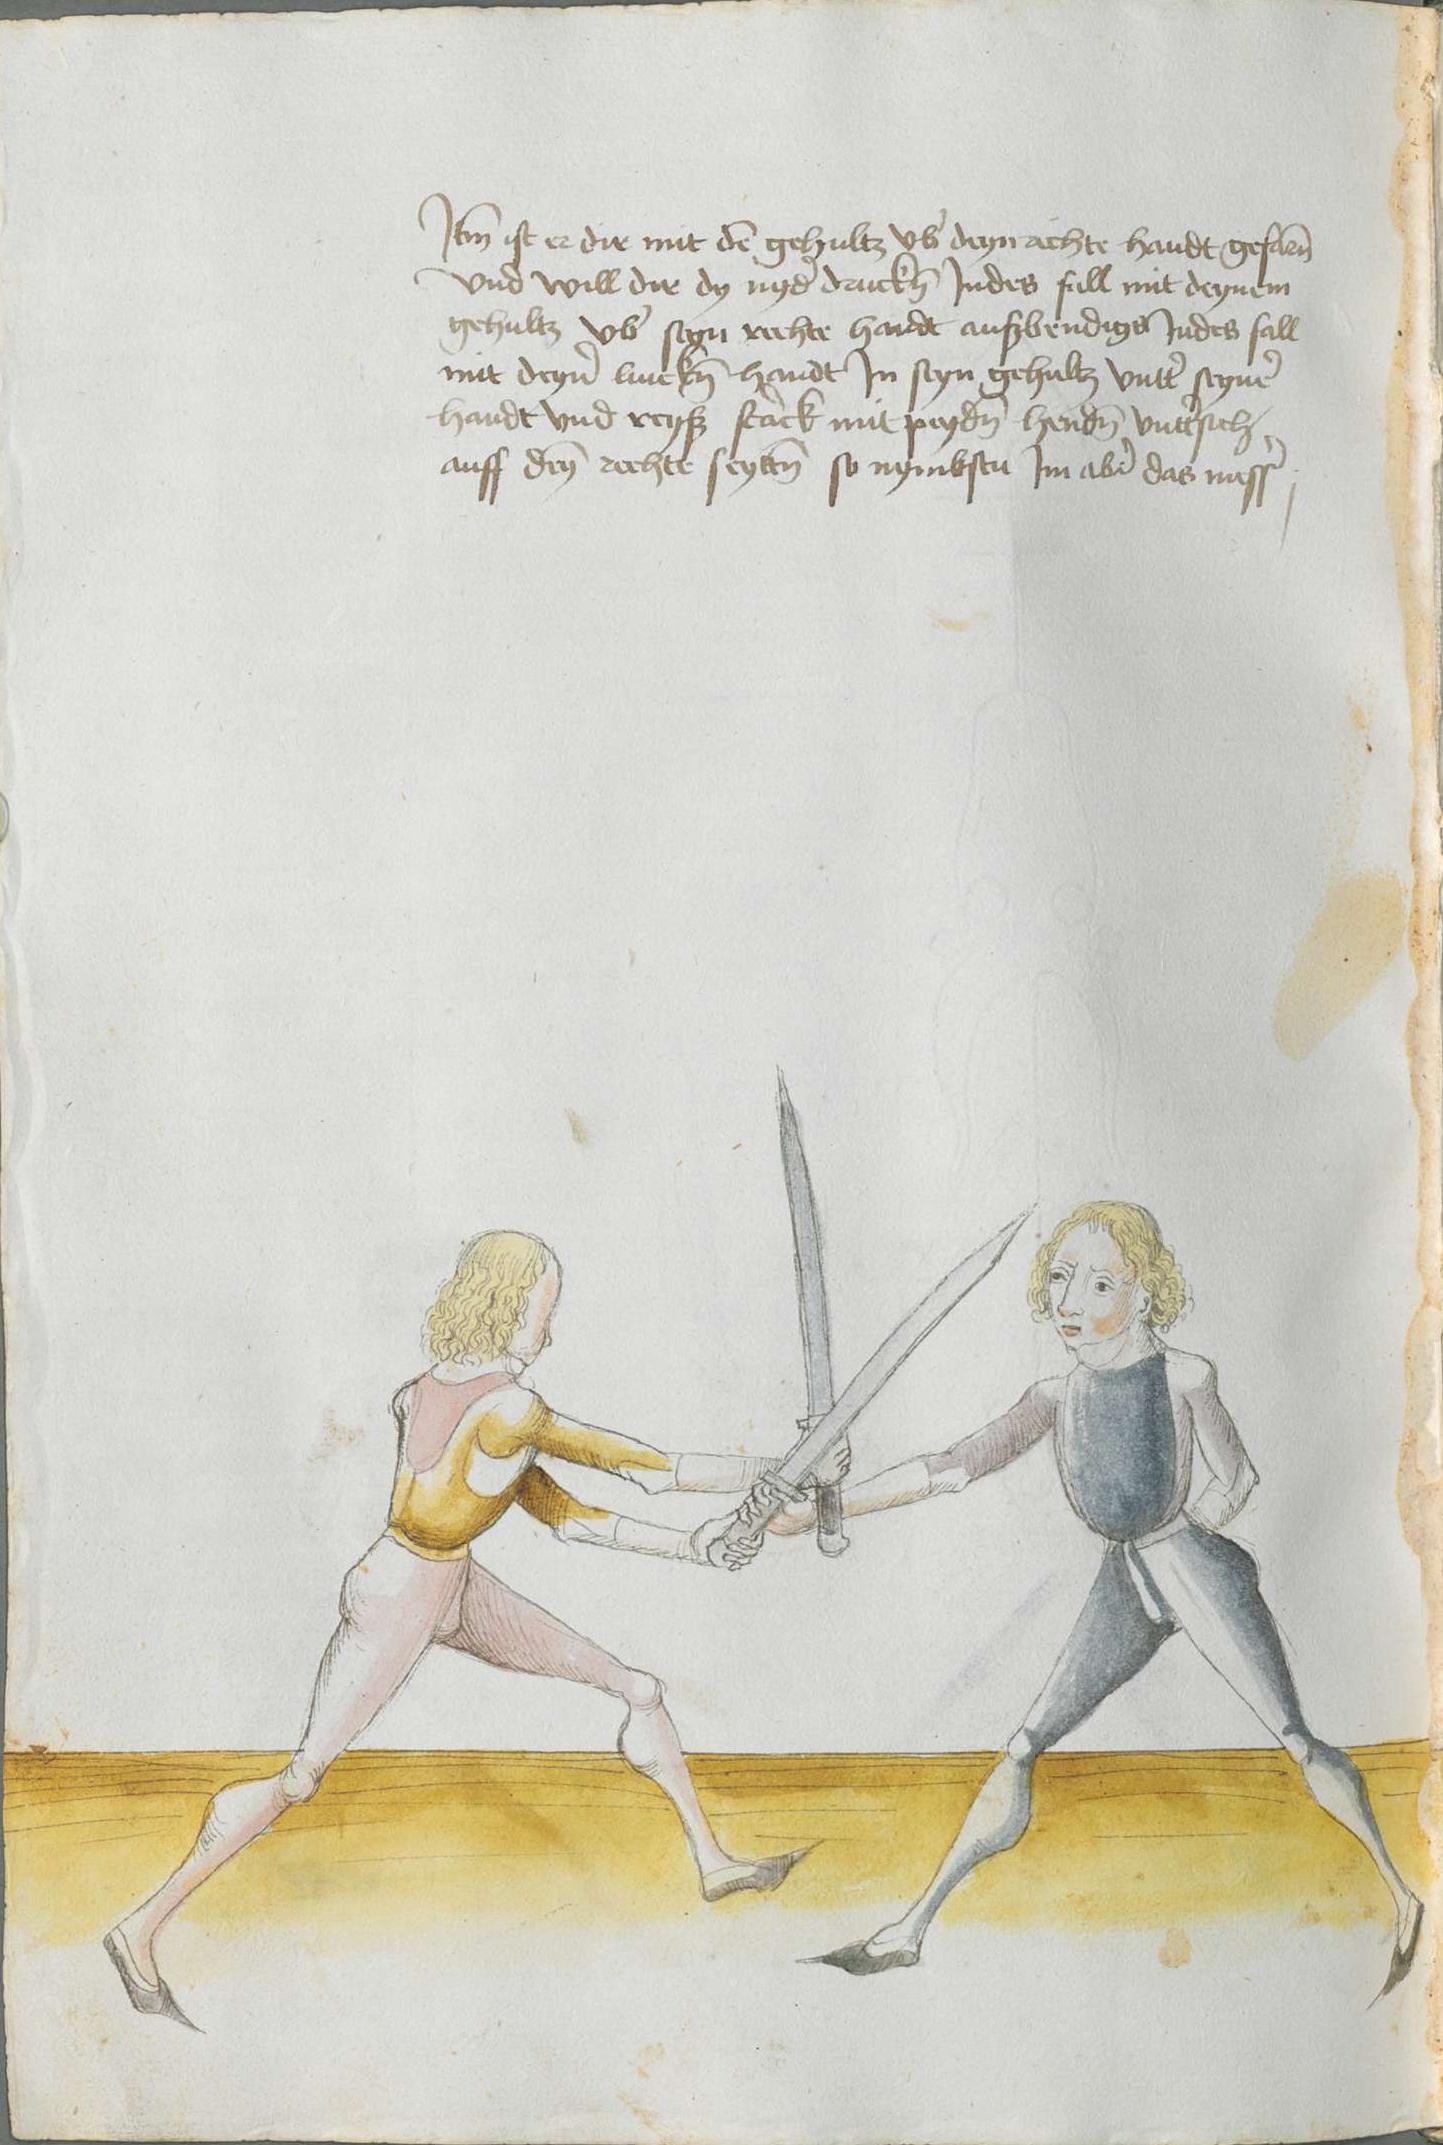 Itm̄ ist er dir mit dē gehultz vb̄ deyn rechte handt gefarn̄
vnd will dir dy nyd̄ druckn̄ Indes fall mit deynem
gehultz vb̄ seyn rechte handt außbendigs Indes fall
mit deyn̄ linckn̄ handt In seyn gehultz vntt̄ seyn̄
handt vnd reyß starck mit peydn̄ hendn̄ vntt̄sich
auff dein̄ rechte seyttn̄ so nymbstu Im ab̄ das mess̄